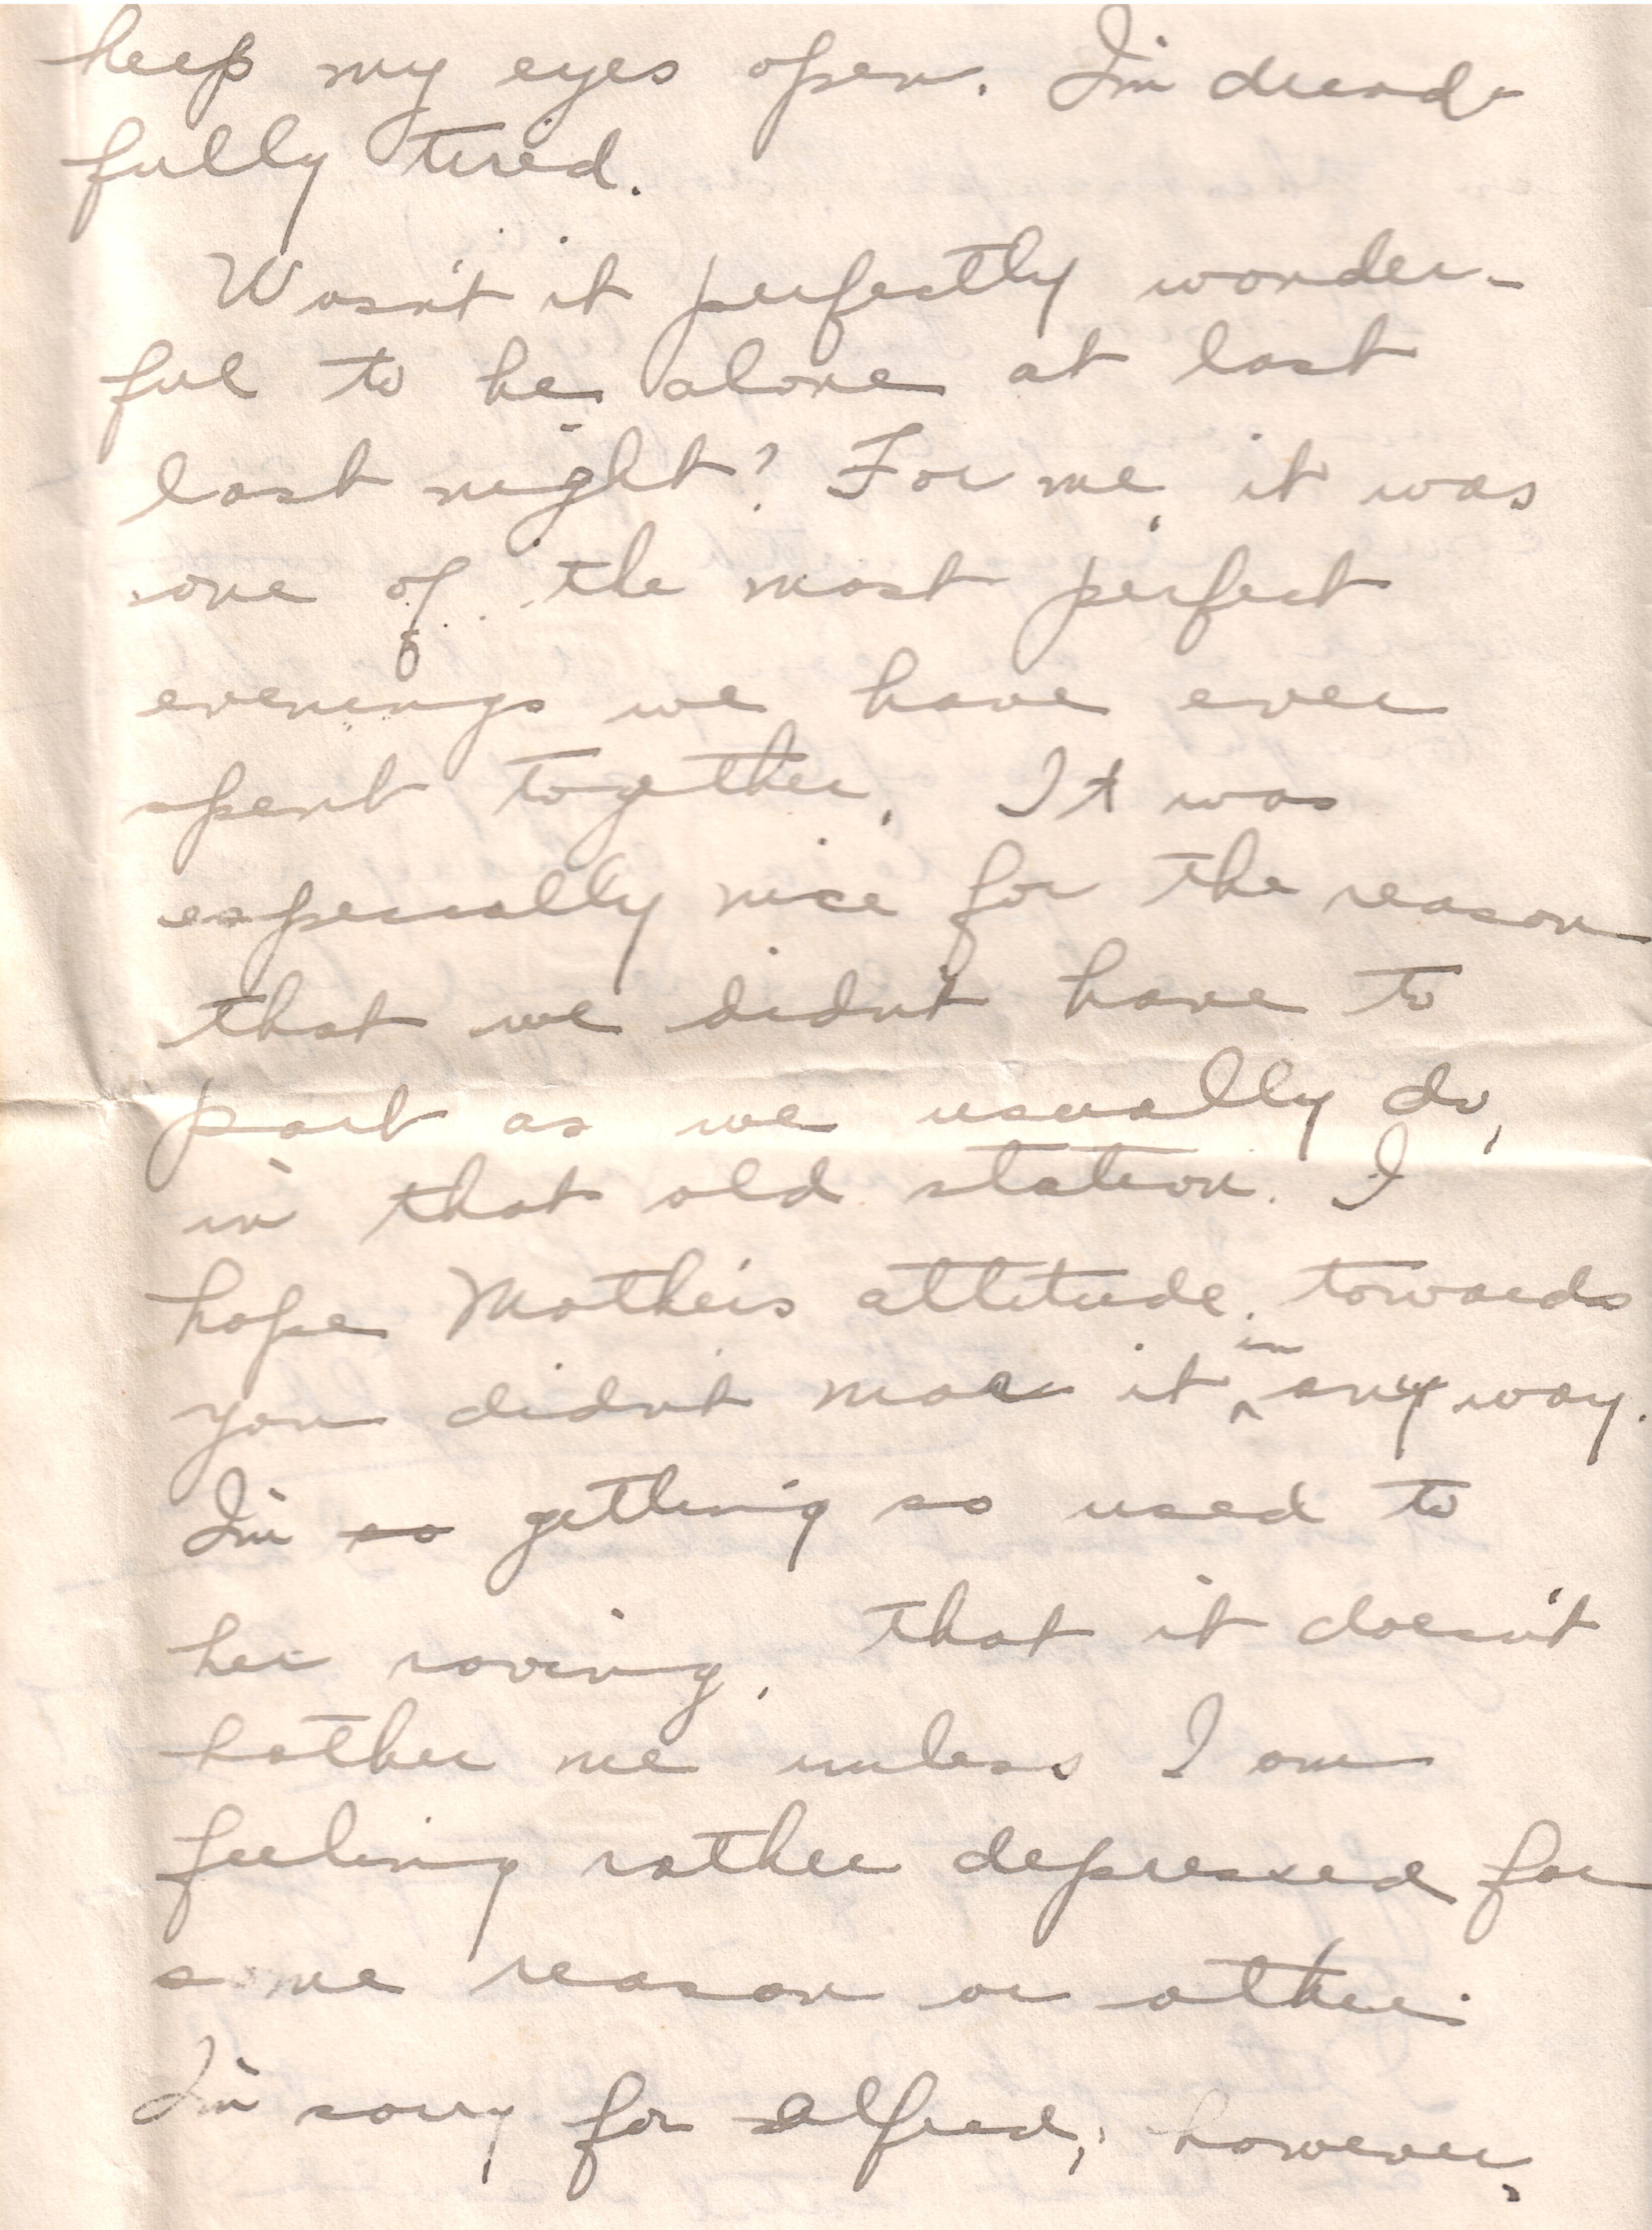 keep my eyes open. I'm dread-
fully tired.
Wasn't it perfectly wonder-
ful to be alone at last
last night? For me, it was
one of the most perfect
evenings we have ever
spent together. It was
especially nice for the reason
that we didn't have to
part as we usually do,
in that old station. I
hope Mother's attitude towards
you didn't mar it in any way.
I'm so getting so used to
her raving, that it doesn't
bother me unless I am
feeling rather depressed for
some reason or other.
I'm sorry for Alfred, however,